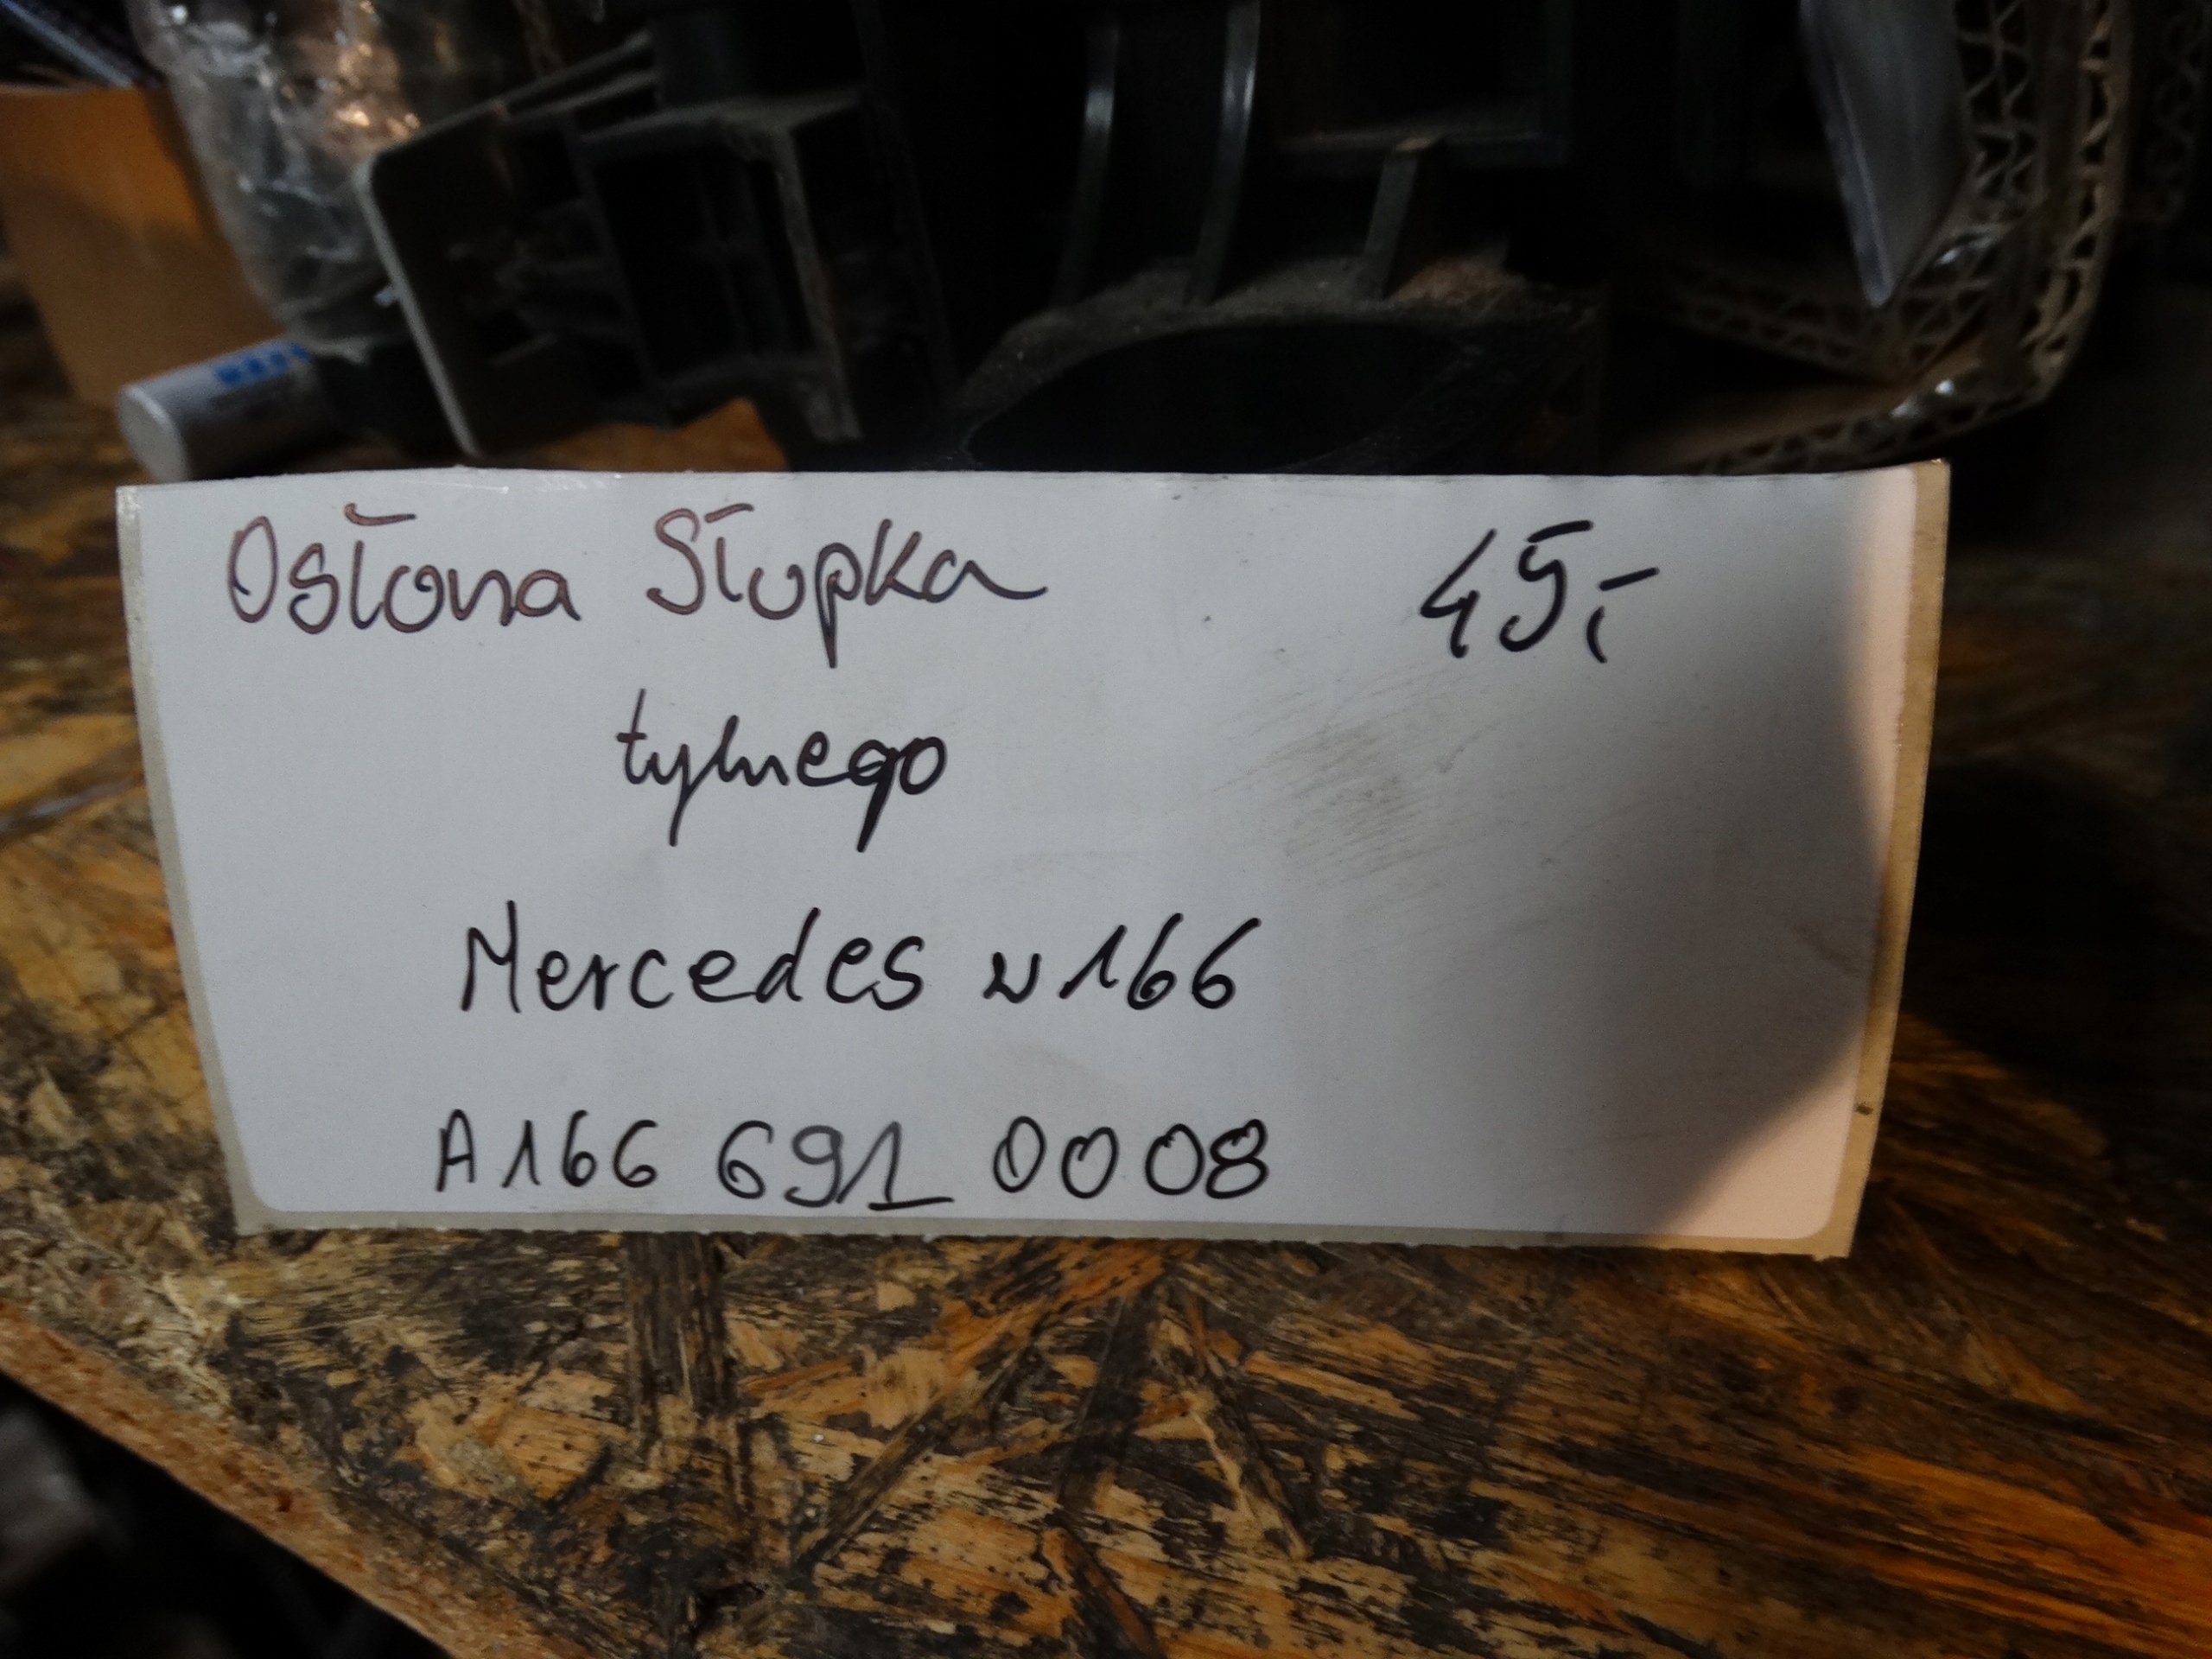 Osłona Słupka 45,-
tylnego
Mercedes w166
A166 691 0008